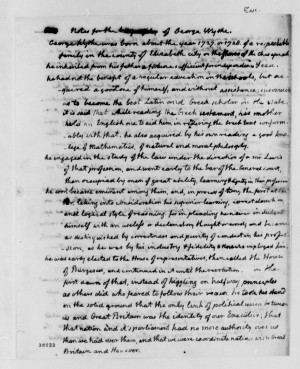 Notes for the biography of George Wythe.
George Wythe was born about the year 1727. or 1728. of a respectable
family in the county of Elizabeth city on the shores of the Chesapeake
he inherited from his father a fortune sufficient for independance & ease.
he had not the benefit of a regular education in the schools, but ac-
quired a good one of himself, and without assistance, insomuch
as to become the best Latin and Greek scholar in the state.
it is said that while reading the Greek testament, his mother
held an English one to aid him in rendering the Greek text conform-
ably with that. he also acquired by his own reading a good know-
lege of Mathematics, & of natural and moral philosophy.
he engaged in the study of the law under the direction of a mr Lewis
of that profession, and went early to the bar of the General court,
then occupied by men of great ability, learning & dignity in their profession
he soon became eminent among them, and, in process of time, the first at the
bar, taking into consideration his superior learning, correct elocution
and logical style of reasoning. for in pleading he never indulged
himself with an useless or declamatory thought or word; and became
as distinguished by correctness and purity of conduct in his profes-
sion, as he was by his industry & fidelity to those who employed him.
he was early elected to the House of representatives, then called the House
of Burgesses, and continued in it until the revolution. on the
first dawn of that, instead of higgling on halfway principles
as others did who feared to follow their reason, he took his stand
on the solid ground that the only link of political union between
us and Great Britain was the identity of our Executive; that
that nation and it's parliament had no more authority over us
than we had over them, and that we were coordinate nations with Great
Britain and Hanover.